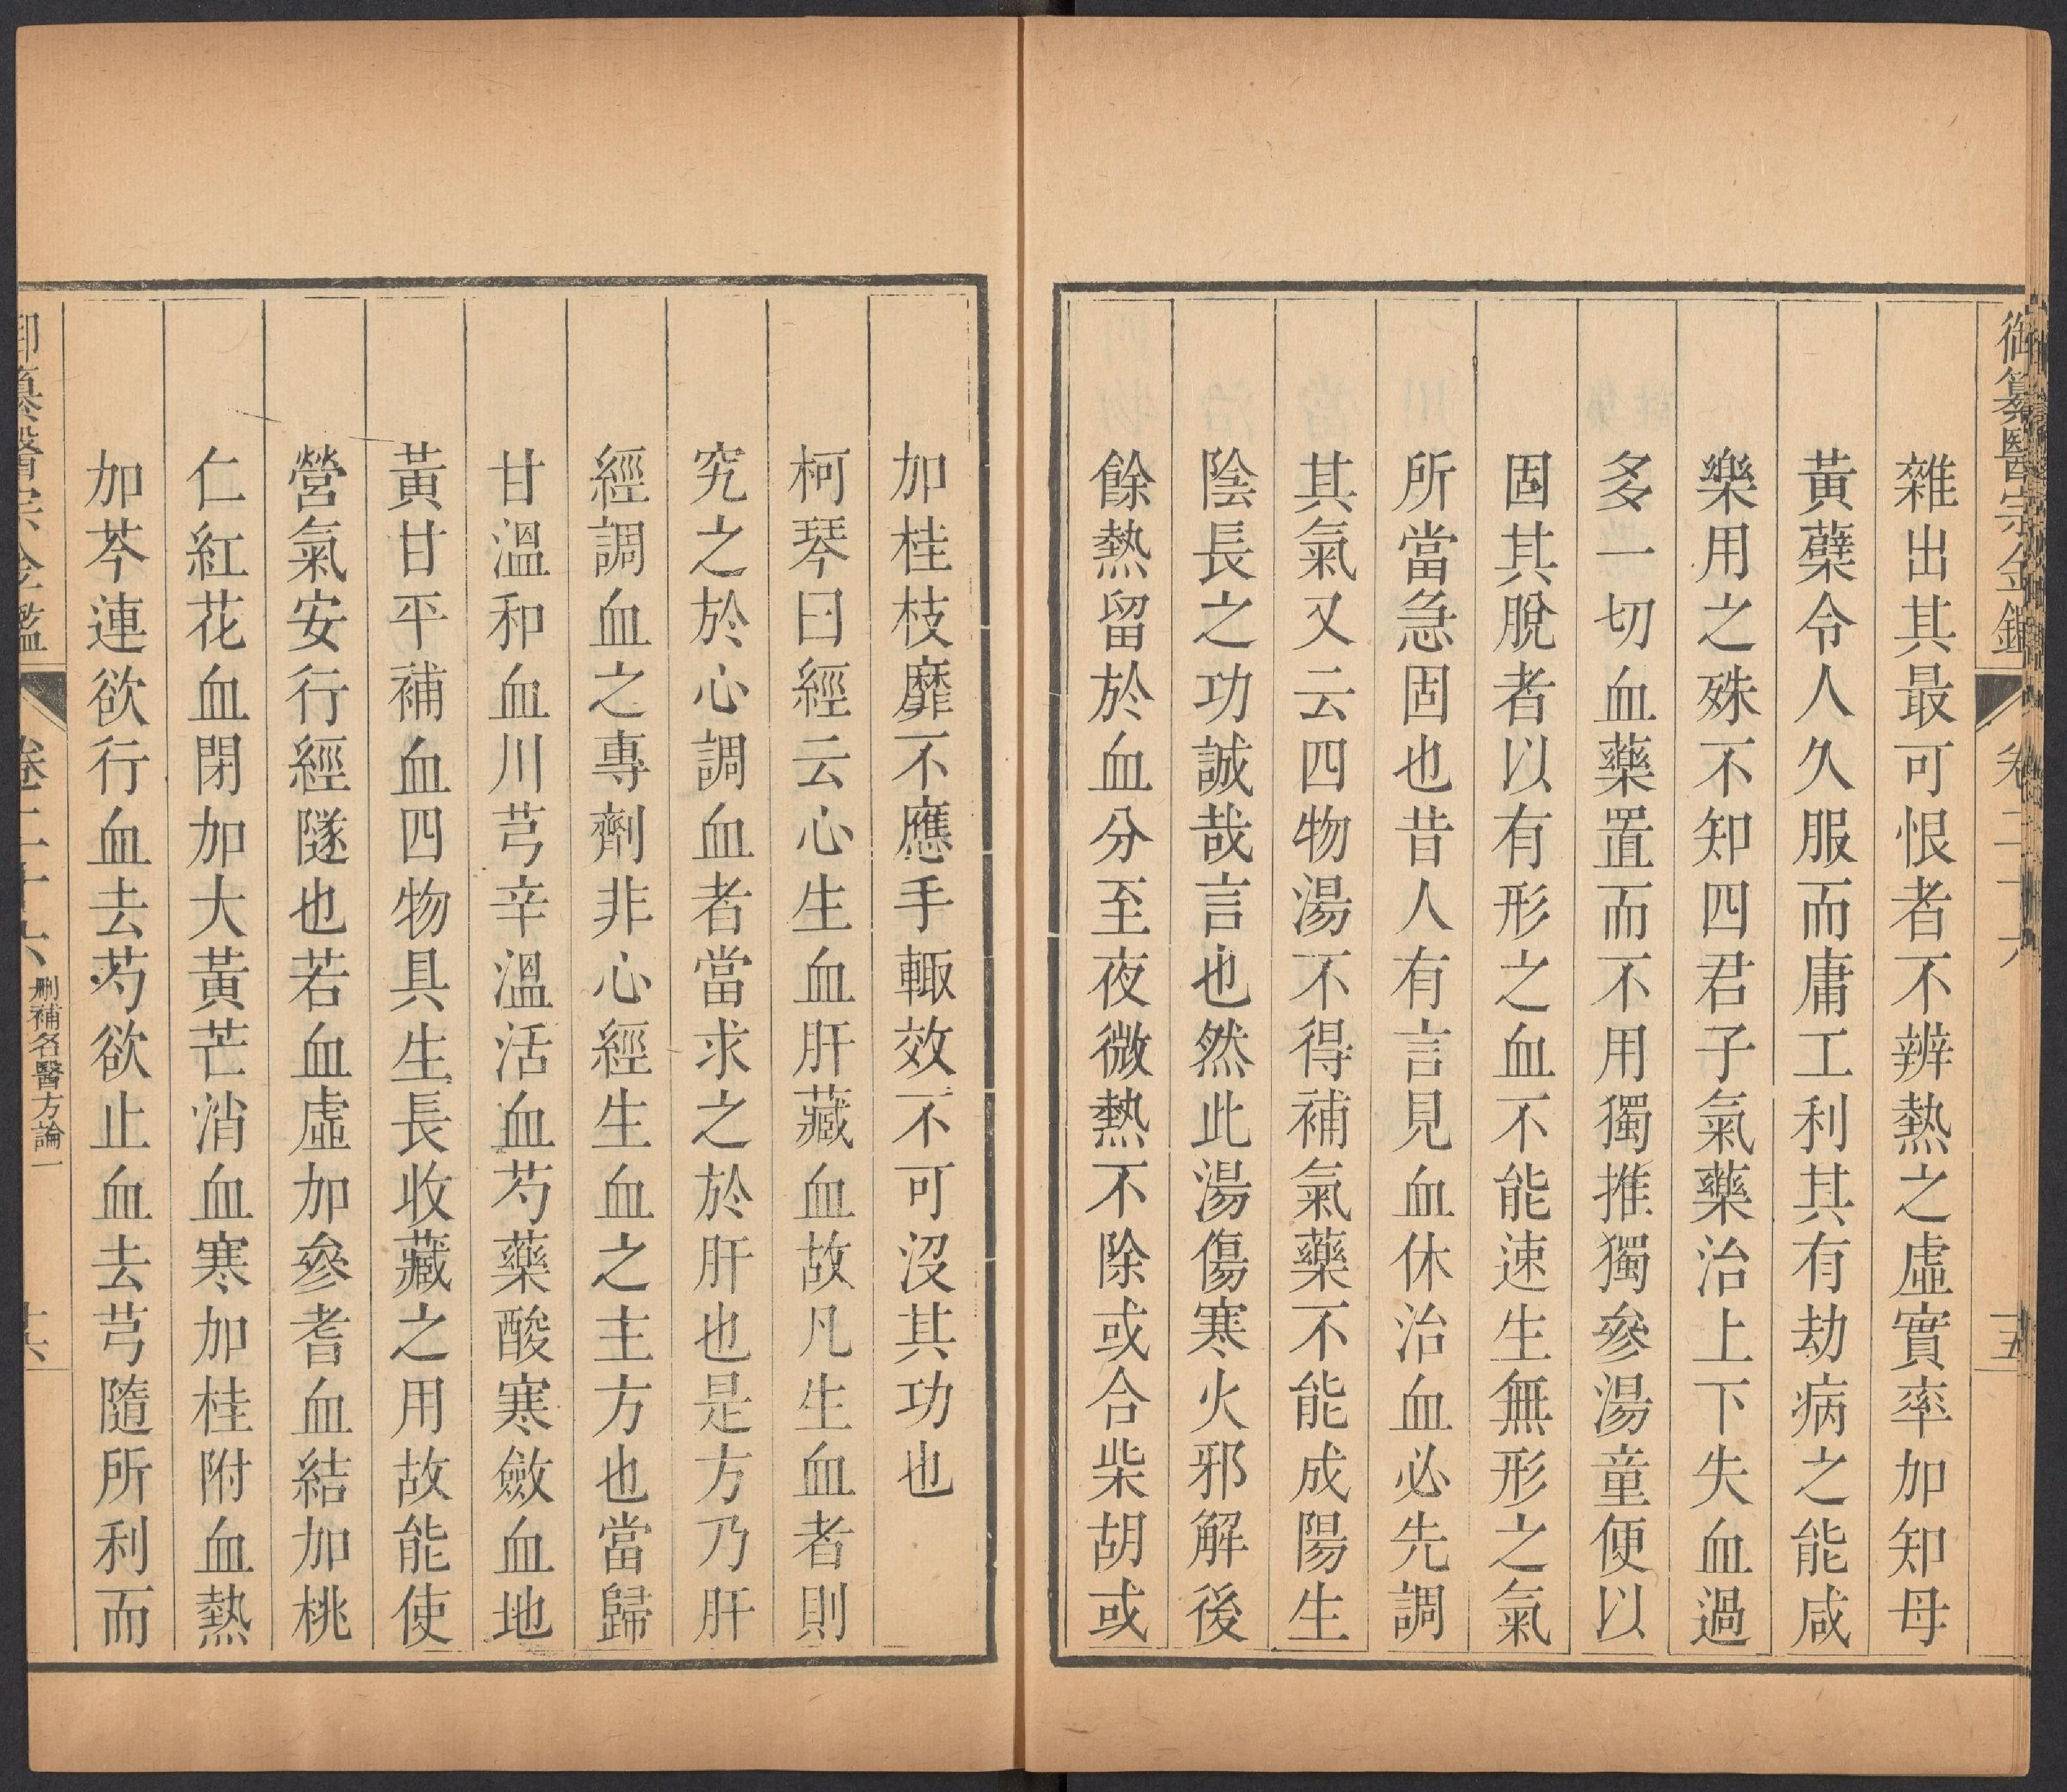 御纂醫宗金鑑 卷二十六 十五
雜出其最可恨者不辨熱之虛實率加知母
黃蘗令人久服而庸工利其有劫病之能咸
樂用之殊不知四君子氣藥治上下失血過
多一切血藥置而不用獨推獨參湯童便以
固其脫者以有形之血不能速生無形之氣
所當急固也昔人有言見血休治血必先調
其氣又云四物湯不得補氣藥不能成陽生
陰長之功誠哉言也然此湯傷寒火邪解後
餘熱留於血分至夜微熱不除或合柴胡或
加桂枝靡不應手輙效不可沒其功也
柯琴曰經云心生血肝藏血故凡生血者則
究之於心調血者當求之於肝也是方乃肝
經調血之專劑非心經生血之主方也當歸
甘溫和血川芎辛溫活血芍藥酸寒斂血地
黃甘平補血四物具生長收藏之用故能使
營氣安行經隧也若血虛加參耆血結加桃
仁紅花血閉加大黃芒消血寒加桂附血熱
加芩連欲行血去芍欲止血去芎隨所利而
御纂醫宗金鑑 卷二十六 刪補名醫方論一 十六